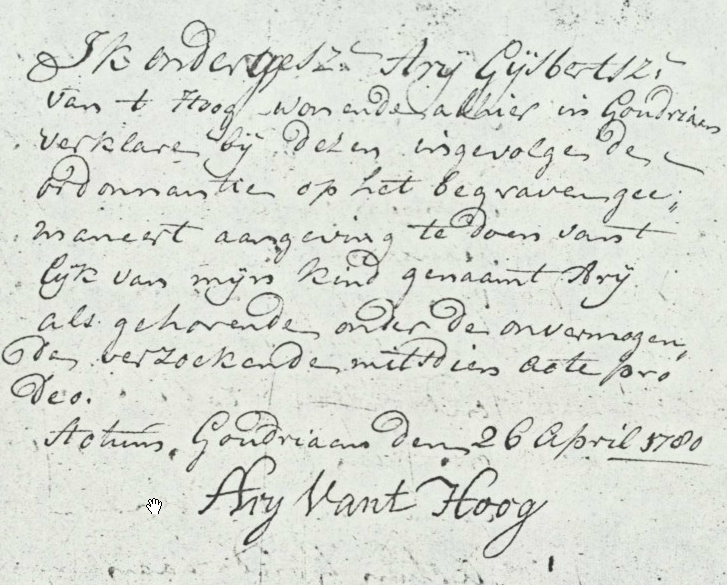 Ik ondergesz: Arij Gijsbertsz:
van t Hoog wonende alhier in Goudriaan
verklare bij dezen ingevolge de
ordonnantie op het begraven gee:
maneert aangeving te doen vant
Lijk van mijn kind genaamt Arij
als gehorende onder de onvermogen,
de, verzoekende mitsdien acte pro
Deo.
Actum, Goudriaan den 26 April 1780
Ary Vant Hoog